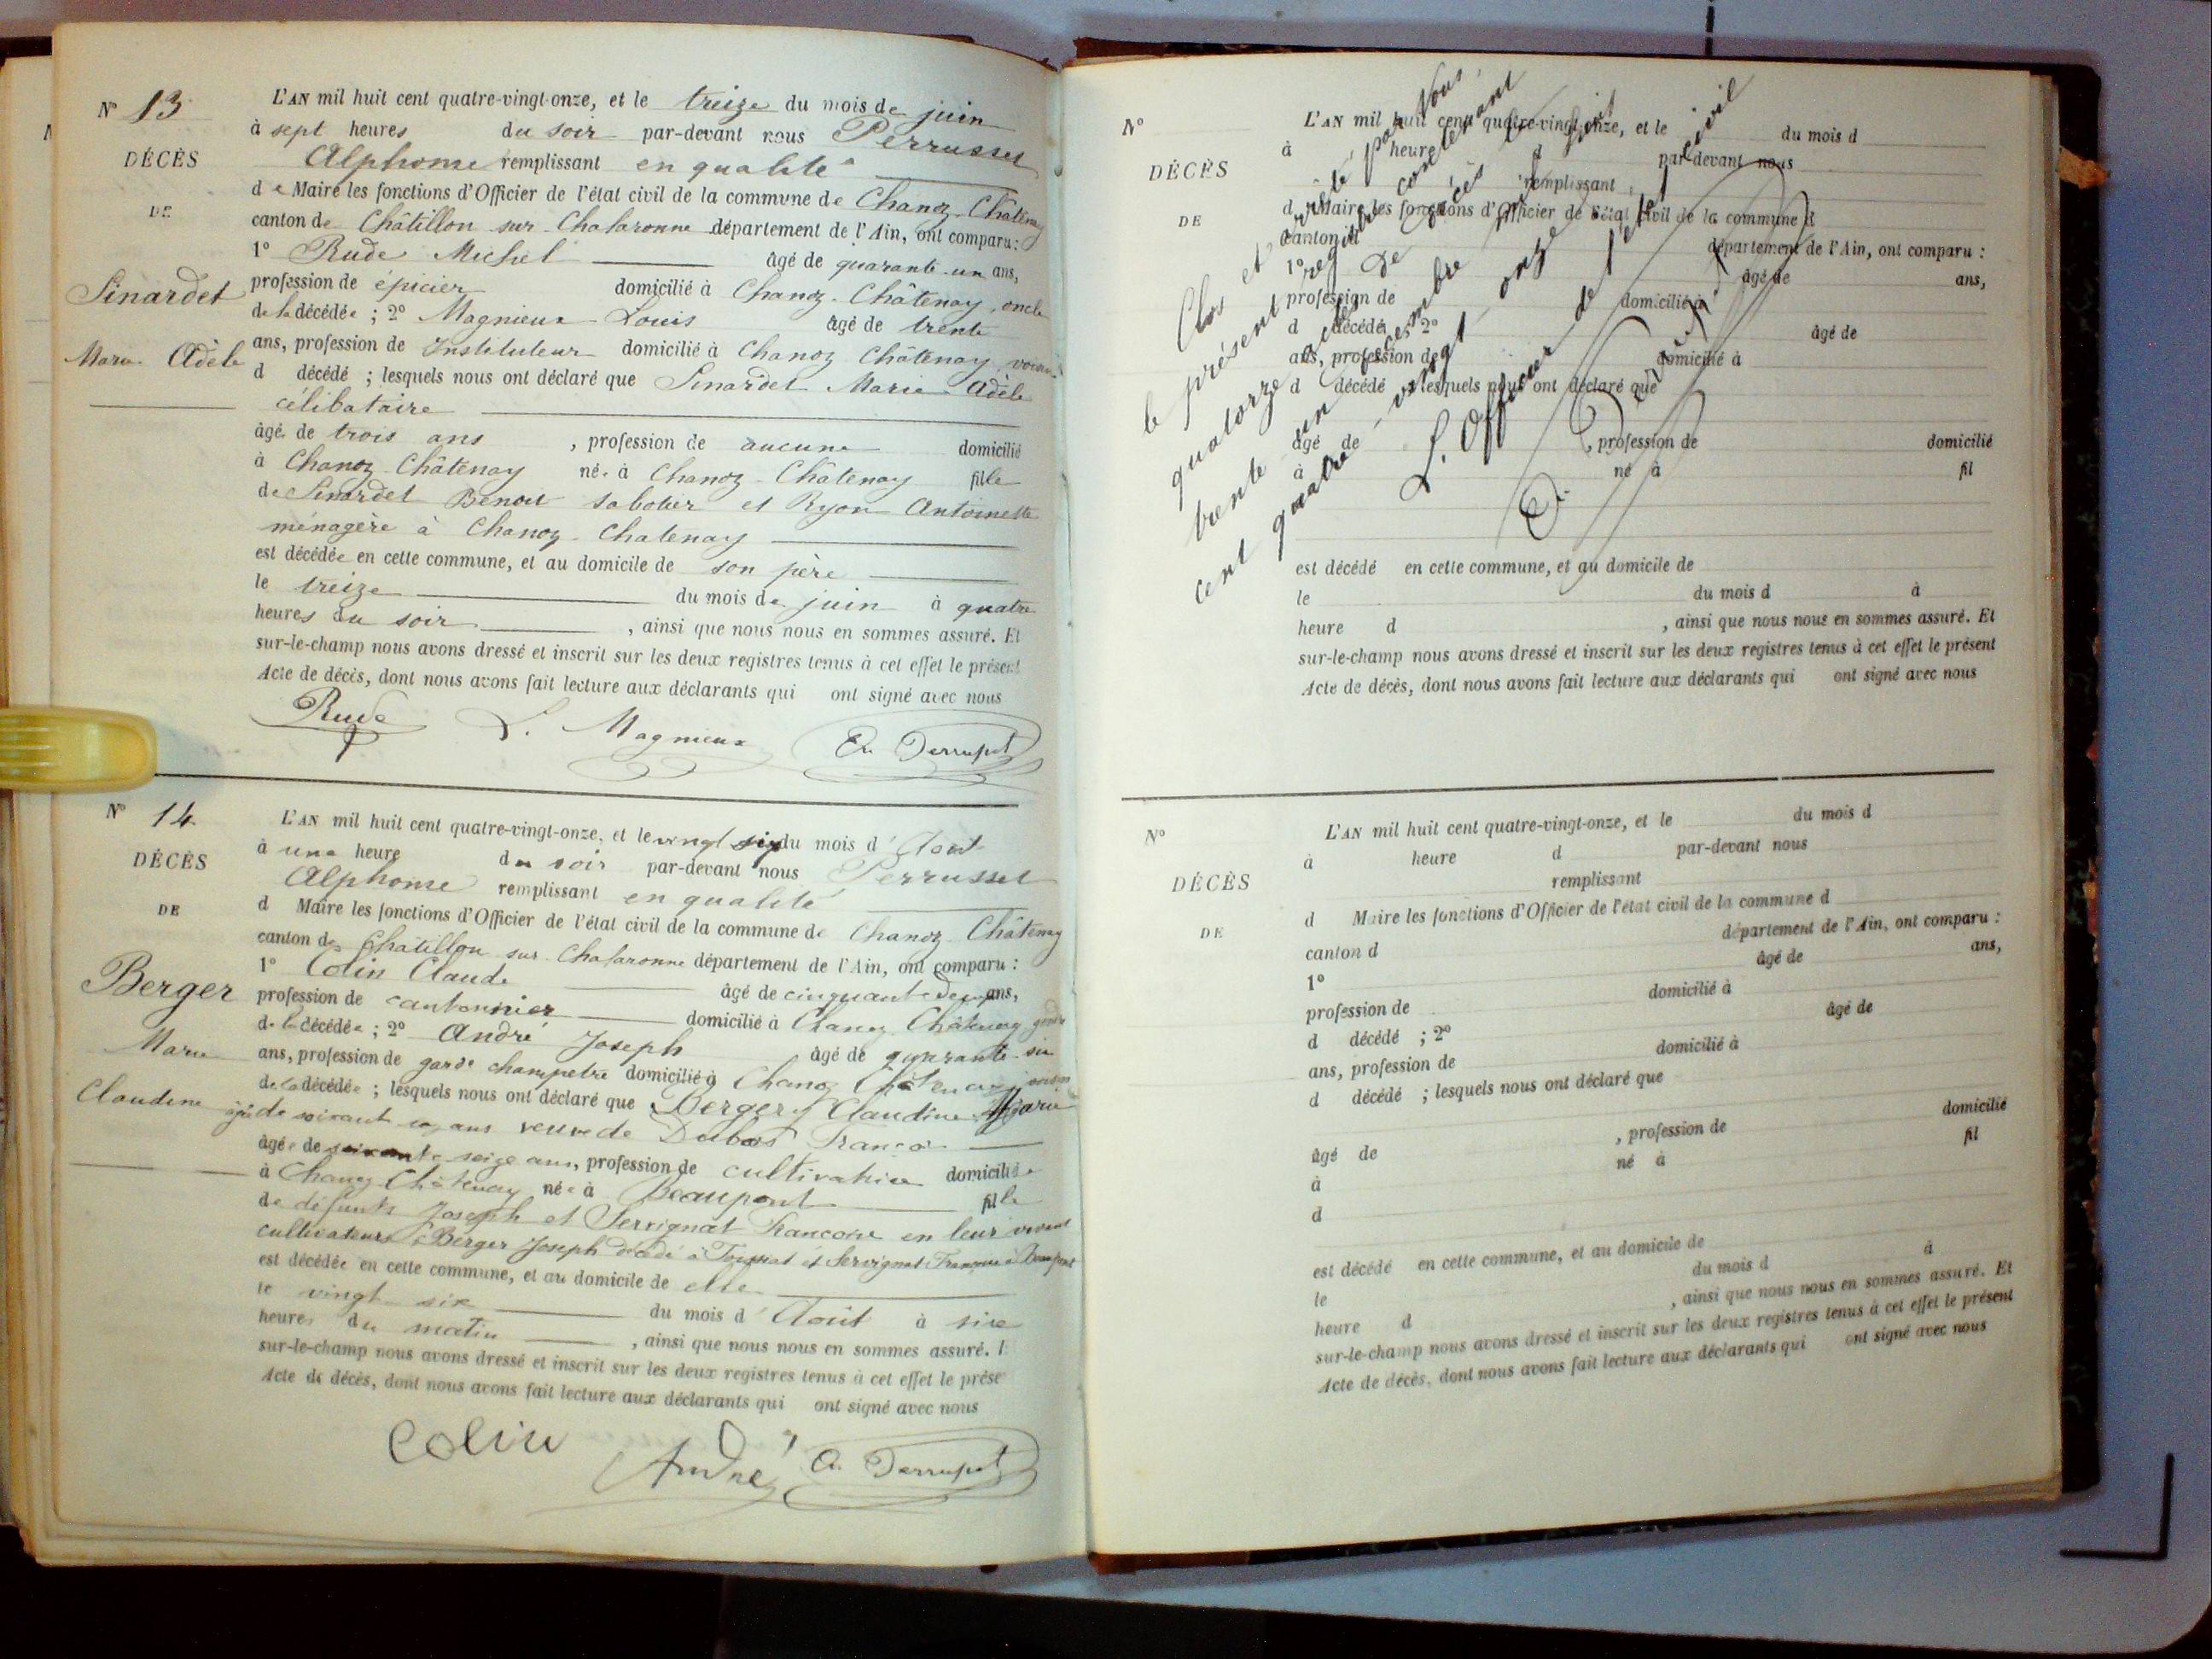 N° 13
DÉCÈS
DE
Sinardet
Marie Adèle
L'AN mil huit cent quatre-vingt-onze, et le treize du mois de juin
à sept heures du soir par-devant nous Perrusset
Alphonse remplissant en qualité
de Maire les fonctions d'Officier de l'état civil de la commune de Chanoz-Châtenay
canton de Châtillon sur Chalaronne département de l'Ain, ont comparu :
1° Rude Michel âgé de quarante-un ans,
profession de épicier domicilié à Chanoz-Châtenay, oncle
de la décédée ; 2° Magnieux Louis âgé de trente
ans, profession de Instituteur domicilié à Chanoz Châtenay, voisin
d décédé ; lesquels nous ont déclaré que Sinardet Marie Adèle
célibataire
âgé de trois ans , profession de aucune domicilié
à Chanoz-Châtenay née à Chanoz-Châtenay fille
de Sinardet Benoit sabotier et Ryon Antoinette
ménagère à Chanoz-Chatenay
est décédée en cette commune, et au domicile de son père
le treize du mois de juin à quatre
heures du soir , ainsi que nous nous en sommes assuré. Et
sur-le-champ nous avons dressé et inscrit sur les deux registres tenus à cet effet le présent
Acte de décès, dont nous avons fait lecture aux déclarants qui ont signé avec nous
Rude L. Magnieux A. Perrusset
N° 14
DÉCÈS
DE
Berger
Marie
Claudine
L'AN mil huit cent quatre-vingt-onze, et le vingt six du mois d'Aout
à une heure du soir par-devant nous Perrusset
Alphonse remplissant en qualité
d Maire les fonctions d'Officier de l'état civil de la commune de Chanoz Châtenay
canton de Châtillon sur Chalaronne département de l'Ain, ont comparu :
1° Colin Claude âgé de cinquante deux ans,
profession de cantonnier domicilié à Chanoz Châtenay gendre
de la décédée ; 2° André Joseph âgé de quarante-six
ans, profession de garde champetre domicilié à Chanoz Châtenay voisin
de la décédée ; lesquels nous ont déclaré que Berger Claudine Marie
ans veuve de Dubois
âgée de soixante seize ans, profession de cultivatrice domiciliée
à Chanoz Châtenay née à Beaupont fille
de défunts Joseph et Servignat Francoise en leur vivant
cultivateurs Berger Joseph décédé à et Servignat Francoise à Beaupont
est décédée en cette commune, et au domicile de elle
le vingt six du mois d'Aout à six
heures du matin , ainsi que nous nous en sommes assuré.
sur-le-champ nous avons dressé et inscrit sur les deux registres tenus à cet effet le prése
Acte de décès, dont nous avons fait lecture aux déclarants qui ont signé avec nous
Colin André A. Perrusset
N°
DÉCÈS
DE
L'AN mil huit cent quatre-vingt-onze, et le du mois d
à heure d par-devant nous
remplissant
d Maire les fonctions d'Officier de l'état civil de la commune d
canton d département de l'Ain, ont comparu :
1° âgé de ans,
profession de domicilié à
d décédé ; 2° âgé de
ans, profession de domicilié à
d décédé ; lesquels nous ont déclaré que
âgé de , profession de domicilié
à né à fil
est décédé en cette commune, et au domicile de
le du mois d à
heure d , ainsi que nous nous en sommes assuré. Et
sur-le-champ nous avons dressé et inscrit sur les deux registres tenus à cet effet le présent
Acte de décès, dont nous avons fait lecture aux déclarants qui ont signé avec nous
Clos et arrêté par Nous
le présent registre contenant
quatorze actes de décès le soit
trente un décembre mil huit
cent quatre-vingt-onze
L'Officier de l'état civil
A. Perrusset
N°
DÉCÈS
DE
L'AN mil huit cent quatre-vingt-onze, et le du mois d
à heure d par-devant nous
remplissant
d Maire les fonctions d'Officier de l'état civil de la commune d
canton d département de l'Ain, ont comparu :
1° âgé de ans,
profession de domicilié à
d décédé ; 2° âgé de
ans, profession de domicilié à
d décédé ; lesquels nous ont déclaré que
âgé de , profession de domicilié
à né à fil
d
est décédé en cette commune, et au domicile de
le du mois d à
heure d , ainsi que nous nous en sommes assuré. Et
sur-le-champ nous avons dressé et inscrit sur les deux registres tenus à cet effet le présent
Acte de décès, dont nous avons fait lecture aux déclarants qui ont signé avec nous